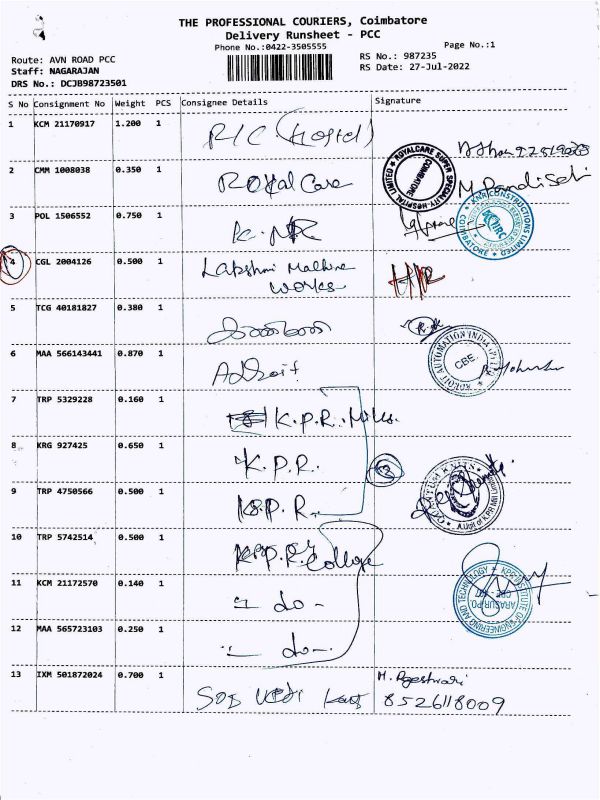 THE PROFESSIONAL COURIERS, Coimbatore
Delivery Runsheet - PCC
Phone No.:0422-3505555
Page No.:1
Route: AVN ROAD PCC
Staff: NAGARAJAN
DRS No.: DCJB98723501
RS No.: 987235
RS Date: 27-Jul-2022
S No Consignment No Weight PCS Consignee Details Signature
1 KCM 21170917 1.200 1 R/C (Hostel)
2 CMM 1008038 0.350 1 Royal Care
ROYALCARE SUPER SPECIALITY HOSPITAL LIMITED
COIMBATORE
3 POL 1506552 0.750 1 K.NR
KNR CONSTRUCTIONS LIMITED
COIMBATORE
4 CGL 2004126 0.500 1 Lakshmi Machine
Works
5 TCG 40181827 0.380 1
6 MAA 566143441 0.870 1 Adroit
AUTOMATION INDIA
CBE.
7 TRP 5329228 0.160 1 K.P.R. Mills.
8 KRG 927425 0.650 1 K.P.R.
9 TRP 4750566 0.500 1 K.P.R.
A Unit of KPR Mill Limited
10 TRP 5742514 0.500 1 K.P.R. College
11 KCM 21172570 0.140 1 - do -
KPR INSTITUTE OF ENGINEERING AND TECHNOLOGY
ARASUR PO.
12 MAA 565723103 0.250 1 - do -
13 IXM 501872024 0.700 1
M. Rajeshwari
8526118009